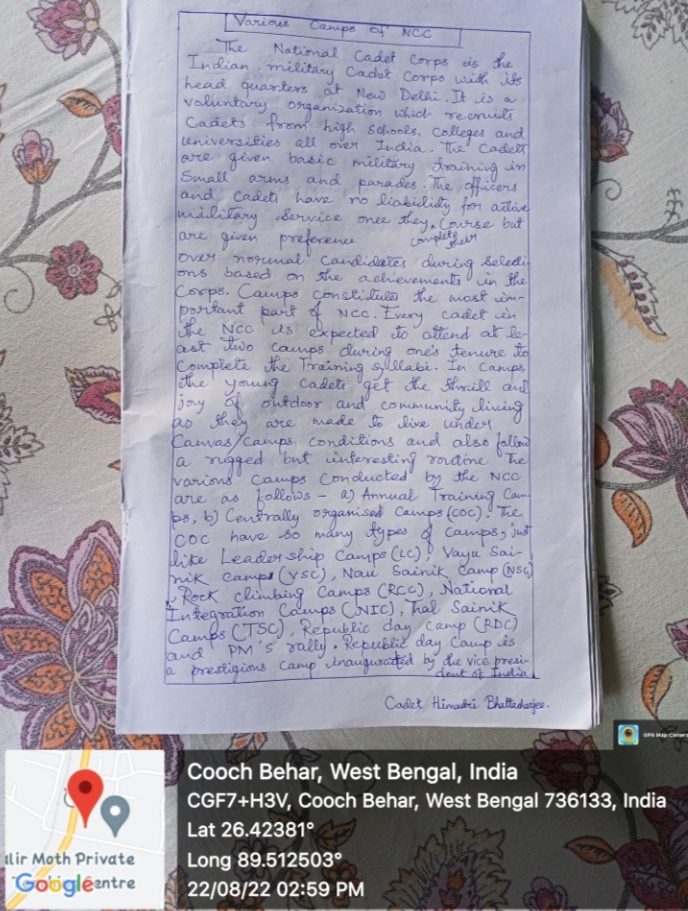 Various Camps of NCC
The National Cadet Corps is the
Indian military Cadet Corps with its
head quarters at New Delhi. It is a
voluntary organization which recruits
Cadets from high schools, Colleges and
Universities all over India. The Cadets
are given basic military training in
Small arms and parades. The officers
and Cadets have no liability for active
military service once they complete their Course but
are given preference
over normal candidates during selecti-
ons based on the achievements in the
Corps. Camps constitutes the most im-
portant part of NCC. Every cadet in
the NCC is expected to attend at le-
ast two camps during one's tenure to
Complete the Training syllabi. In Camps,
the young Cadets get the thrill and
joy of outdoor and community living
as they are made to live under
Canvas/Camps conditions and also follow
a rugged but interesting routine. The
various Camps Conducted by the NCC
are as follows - a) Annual Training Cam-
ps, b) Centrally organised Camps (COC). The
COC have so many types of Camps, just
like Leader ship Camps (LC), Vayu Sai-
nik Camps (VSC), Nau Sainik Camp (NSC)
, Rock climbing Camps (RCC), National
Integration Camps (NIC), Thal Sainik
Camps (TSC), Republic day Camp (RDC)
and PM's rally. Republic day Camp is
a prestigious camp inaugurated by the vice presi-
dent of India.
Cadet Himadri Bhattacharjee.
GPS Map Camera
Cooch Behar, West Bengal, India
CGF7+H3V, Cooch Behar, West Bengal 736133, India
Lat 26.42381°
Long 89.512503°
22/08/22 02:59 PM
alir Moth Private
Google entre